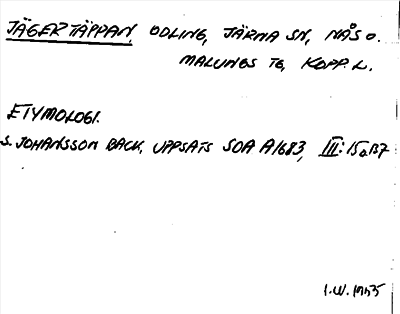 JÄGERTÄPPAN, ODLING, JÄRNA SN, NÅS O.
MALUNGS TG, KOPP. L.
ETYMOLOGI.
S. JOHANSSON BACK, UPPSATS SOA A1683, III:15 o 137
I.W.